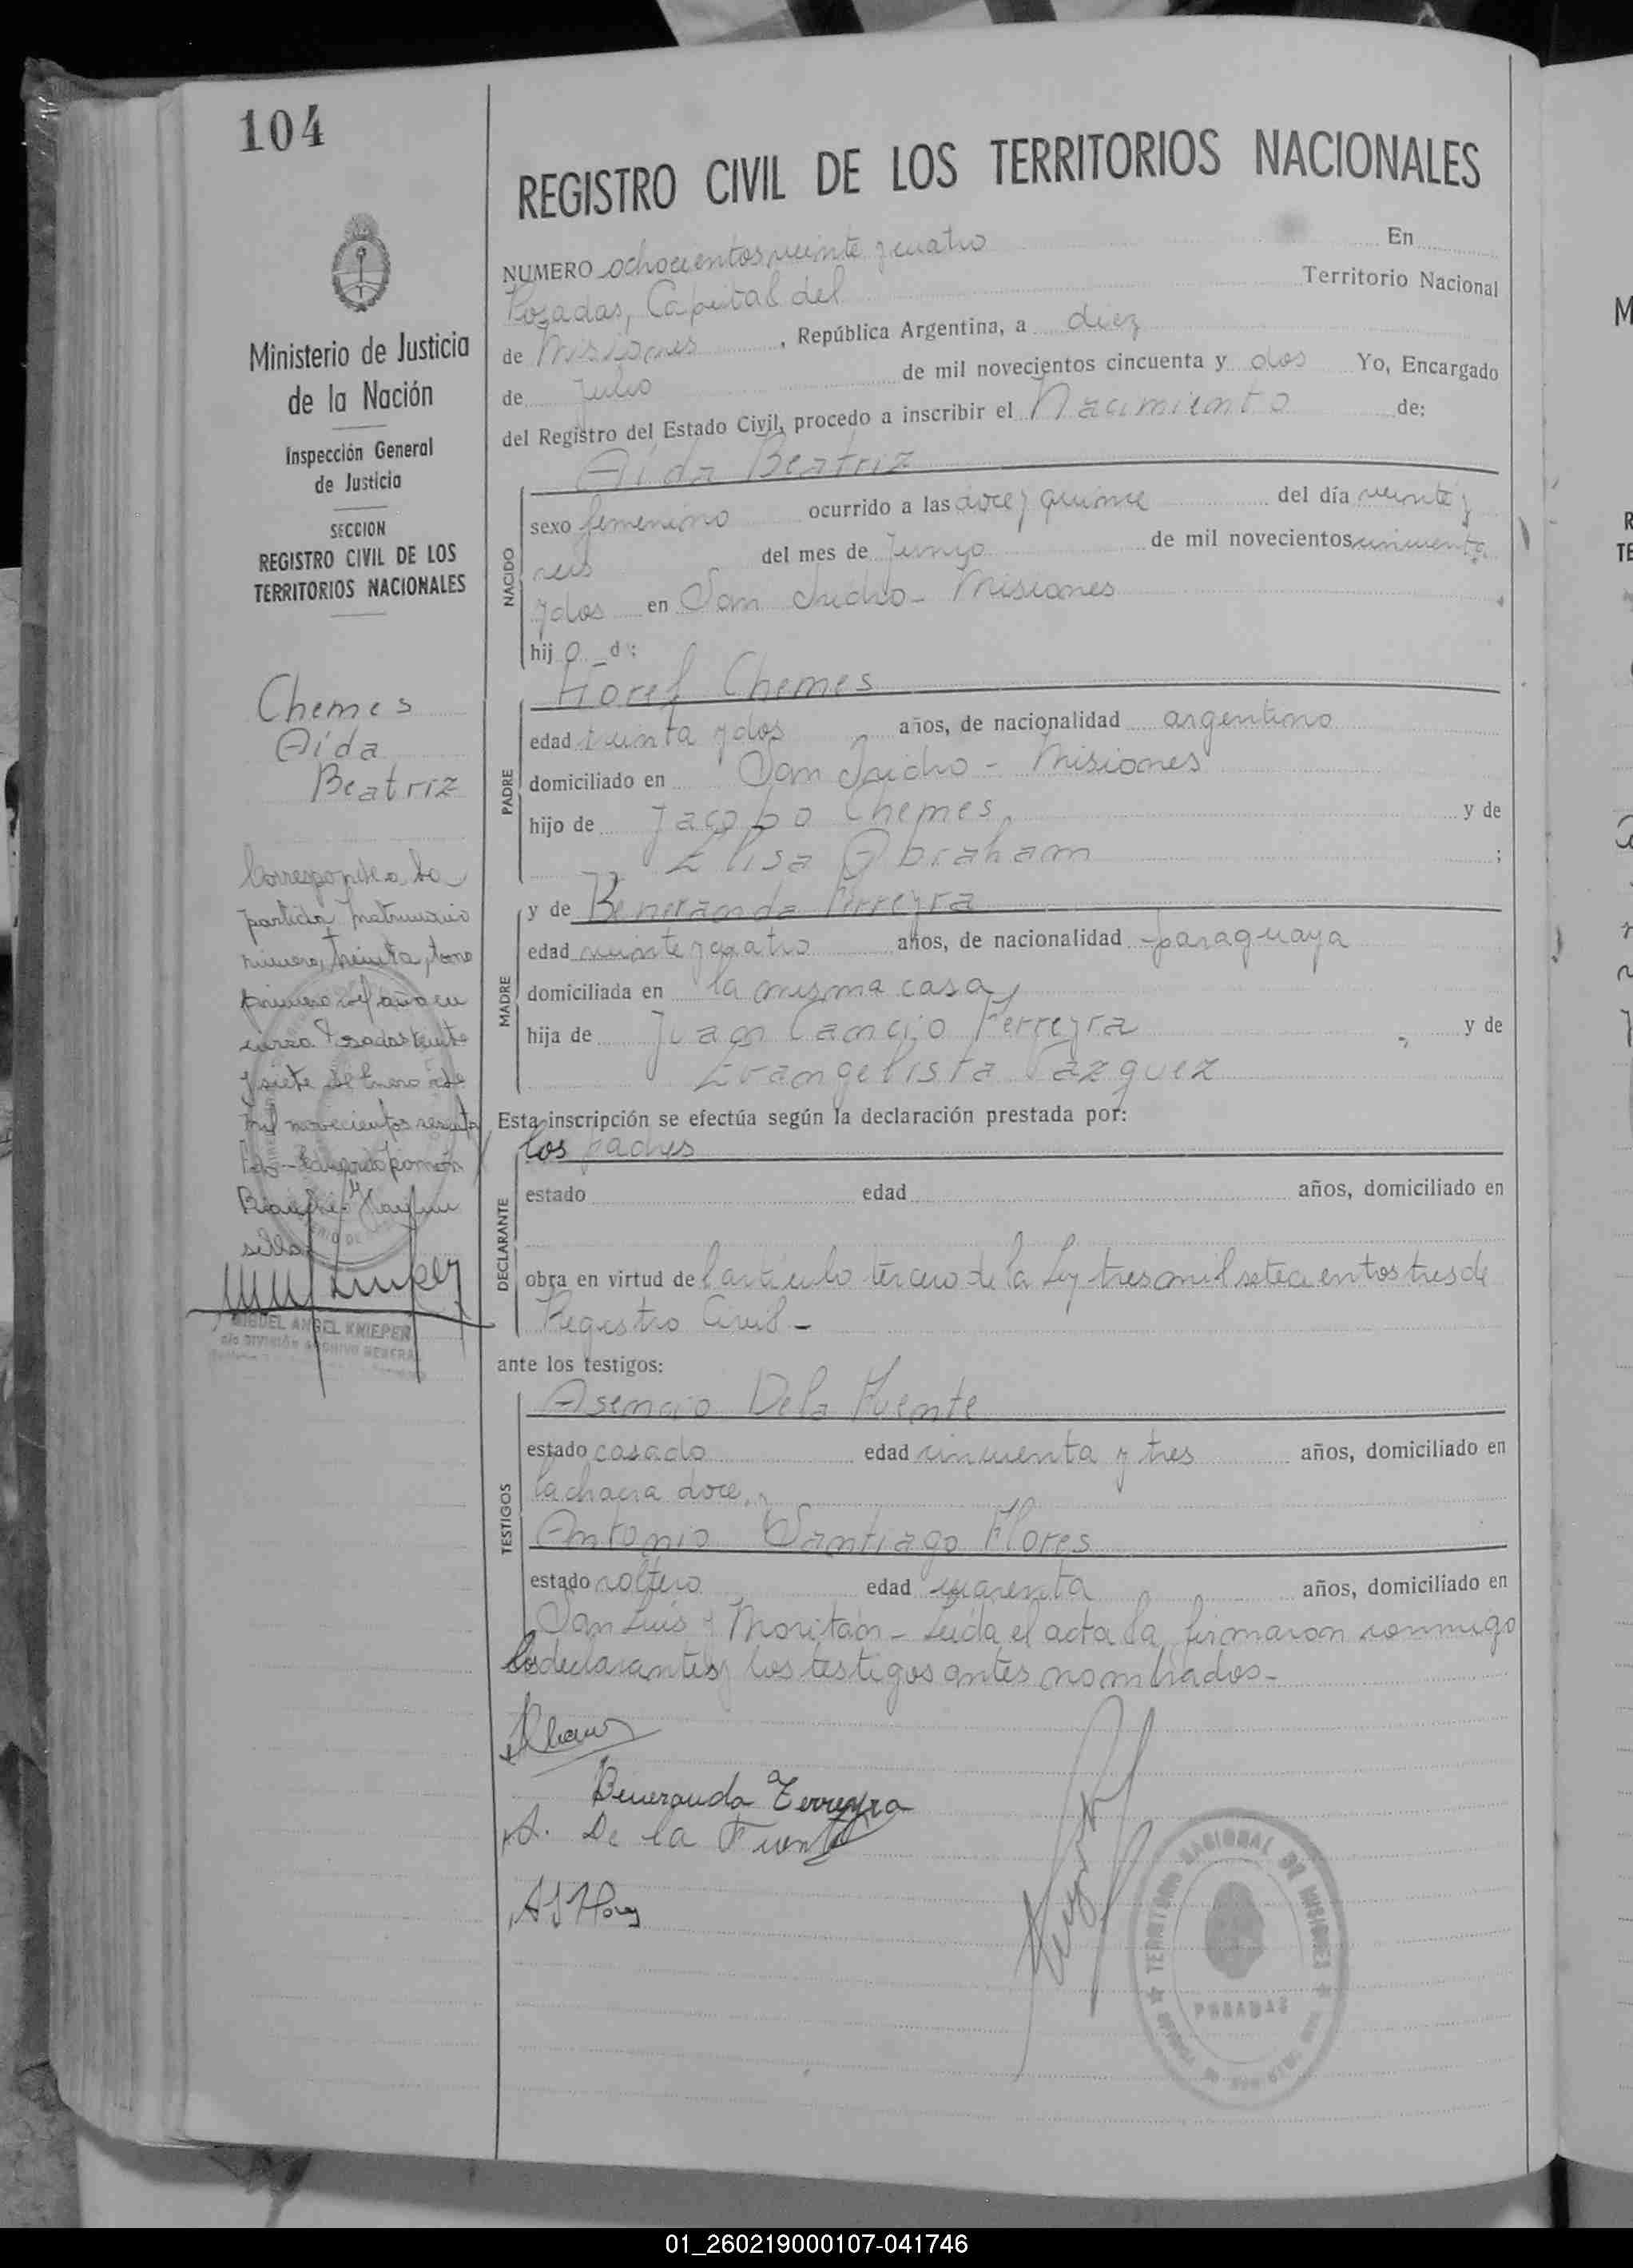 104
Ministerio de Justicia
de la Nación
Inspección General
de Justicia
SECCION
REGISTRO CIVIL DE LOS
TERRITORIOS NACIONALES
Chemes
Aída
Beatriz
Corresponde a la
partida matrimonio
número, treinta, tomo
primero del año en
curso. Posadas veinte
y siete de Enero de
mil novecientos
sello
MIGUEL ANGEL KNIEPER
DIVISIÓN ARCHIVO GENERAL
REGISTRO CIVIL DE LOS TERRITORIOS NACIONALES
NUMERO ochocientos veinte y cuatro En
Posadas, Capital del Territorio Nacional
de Misiones, República Argentina, a diez
de Julio de mil novecientos cincuenta y dos Yo, Encargado
del Registro del Estado Civil, procedo a inscribir el Nacimiento de:
Aída Beatriz
NACIDO
sexo femenino ocurrido a las doce y quince del día veinte y
seis del mes de Junio de mil novecientos cincuenta
y dos en San Isidro - Misiones
hij a d :
PADRE
Chemes
edad treinta y dos años, de nacionalidad argentino
domiciliado en San Isidro - Misiones
hijo de Jacobo Chemes, y de
Elisa Abraham ;
MADRE
y de Beneranda Ferreyra
edad veinte y cuatro años, de nacionalidad paraguaya
domiciliada en la misma casa,
hija de Juan Cancio Ferreyra y de
Evangelista Vazquez
Esta inscripción se efectúa según la declaración prestada por:
DECLARANTE
los padres
estado edad años, domiciliado en
obra en virtud del artículo tercero de la Ley tres mil setecientos tres de
Registro Civil -
ante los testigos:
TESTIGOS
Asencio De la Fuente
estado casado edad cincuenta y tres años, domiciliado en
la chacra doce, y
Antonio Santiago Flores
estado soltero edad cuarenta años, domiciliado en
San Luis y Moritán - Leída el acta la firmaron conmigo
los declarantes y los testigos antes nombrados -
Beneranda Ferreyra
A. De la Fuente
TERRITORIO NACIONAL DE MISIONES
POSADAS
01_260219000107-041746